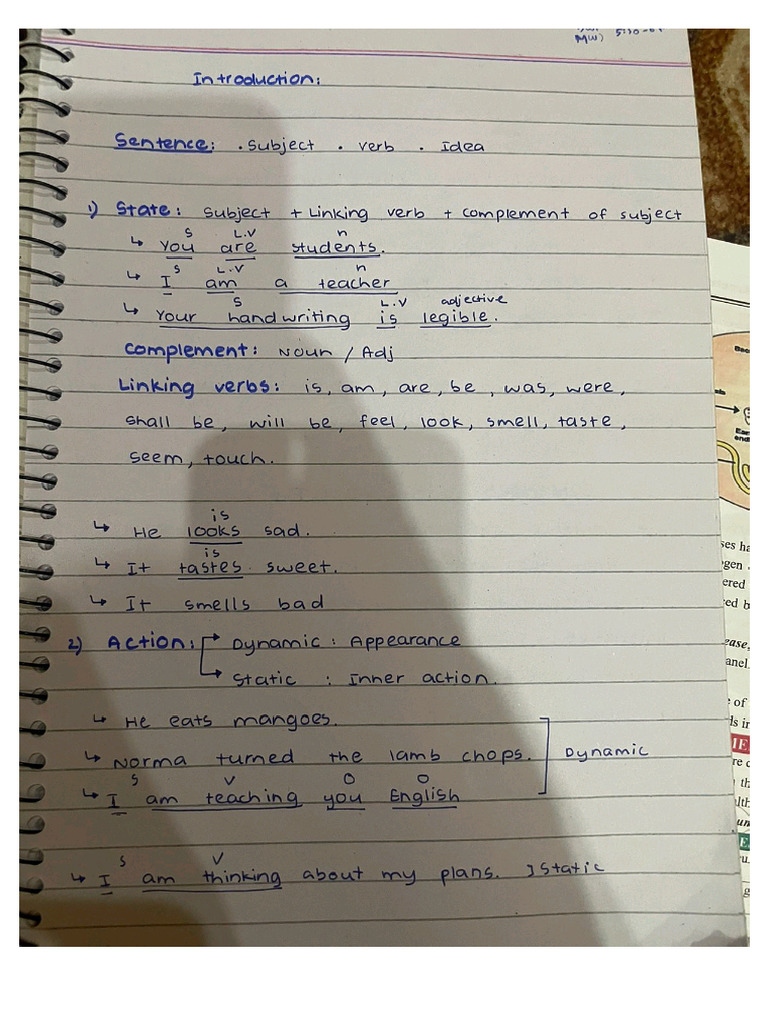 MW) 5:30-
Introduction:
Sentence: . Subject . Verb . Idea
1) State: Subject + Linking verb + complement of subject
S L.V n
↳ You are students.
S L.V n
↳ I am a teacher
S L.V adjective
↳ Your handwriting is legible.
Complement: Noun / Adj
Linking verbs: is, am, are, be, was, were,
shall be, will be, feel, look, smell, taste,
seem, touch.
is
↳ He looks sad.
is
↳ It tastes sweet.
↳ It smells bad
2) Action: Dynamic : Appearance
Static : Inner action.
↳ He eats mangoes.
↳ Norma turned the lamb chops. ] Dynamic
S V O O
↳ I am teaching you English
S V
↳ I am thinking about my plans. ] Static
ses ha
gen
ered
ed b
ease,
anel.
of
ds in
IE
re c
th
alth
un
E
u.
g